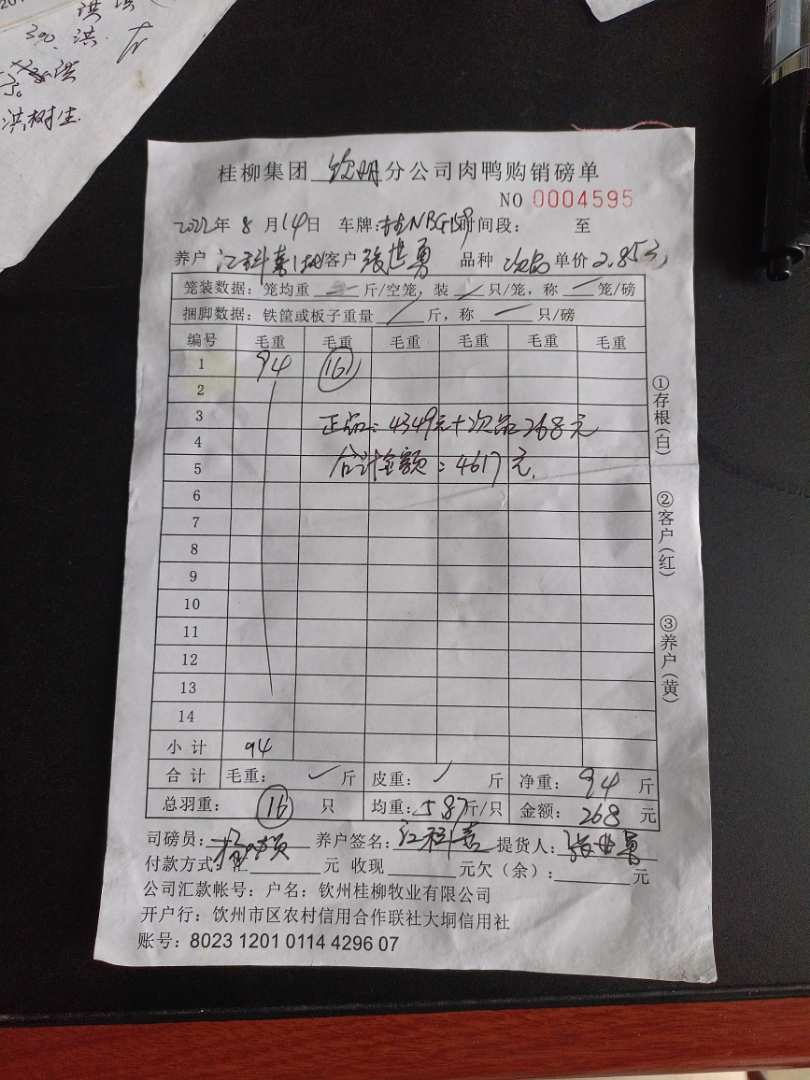 洪 洪
300. 洪
洪
洪树生
桂柳集团 钦州 分公司肉鸭购销磅单
NO 0004595
2022年 8 月 14 日 车牌: 桂NBG159 时间段: 至
养户 江科喜 客户 张世勇 品种 次品 单价 2.853
笼装数据: 笼均重 斤/空笼, 装 只/笼, 称 笼/磅
捆脚数据: 铁筐或板子重量 斤, 称 只/磅
编号 毛重 毛重 毛重 毛重 毛重 毛重
1 94 16
2
3 正品: 4349元+次品268元
4
5 合计金额: 4617元.
6
7
8
9
10
11
12
13
14
小计 94
合计 毛重: 斤 皮重: 斤 净重: 94 斤
总羽重: 16 只 均重: 5.87 斤/只 金额: 268 元
司磅员: 养户签名: 江科喜 提货人: 张世勇
付款方式: 汇 元 收现 元欠(余): 元
公司汇款帐号: 户名: 钦州桂柳牧业有限公司
开户行: 钦州市区农村信用合作联社大垌信用社
账号: 8023 1201 0114 4296 07
①存根(白)
②客户(红)
③养户(黄)